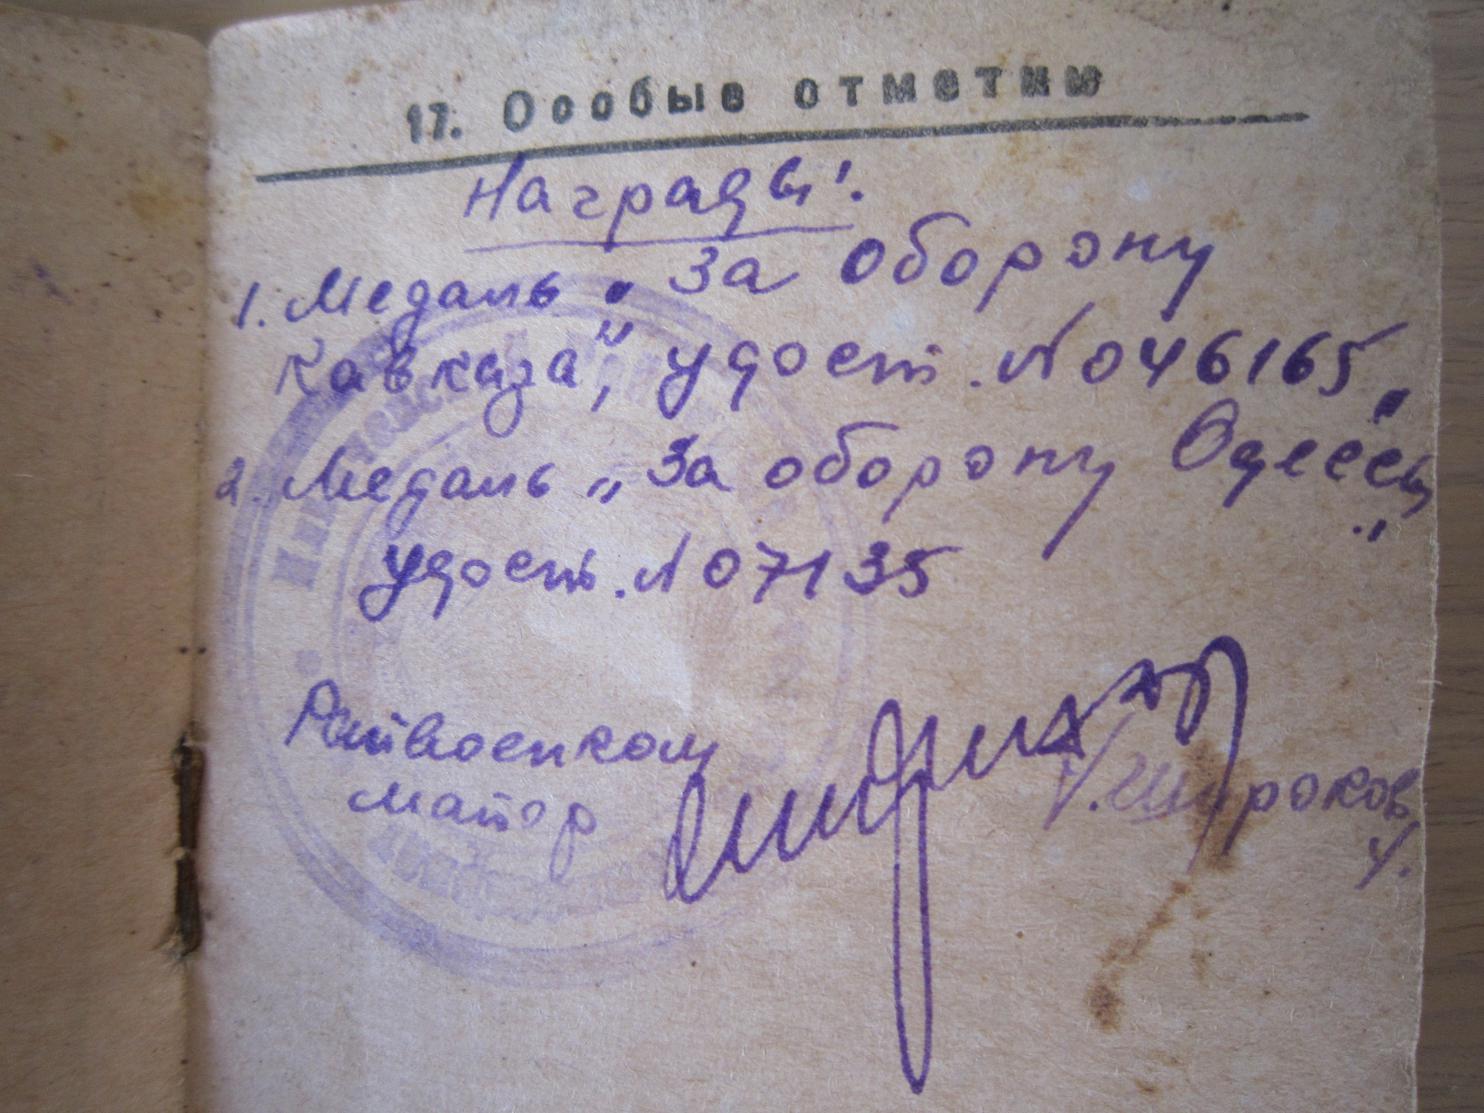 17. Особые отметки
Награды:
1. Медаль „За оборону
Кавказа", удост. № 046165,
2. Медаль „За оборону Одессы"
удост. № 07135
Райвоенком
майор
Широков